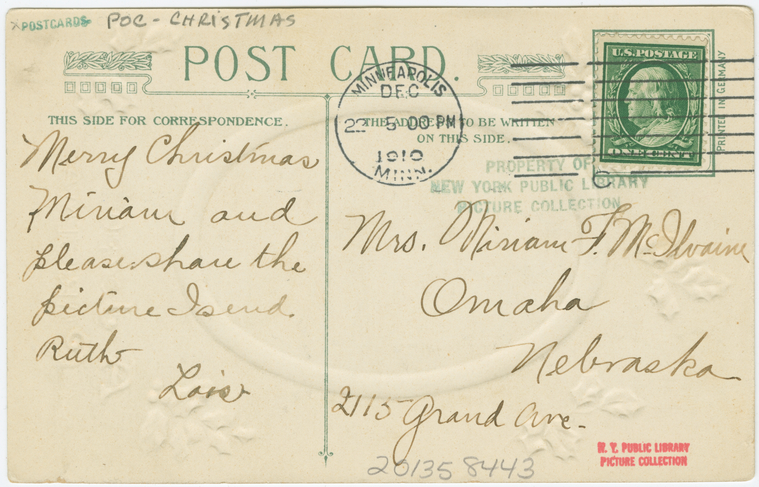 POSTCARDS POC - CHRISTMAS
POST CARD.
THIS SIDE FOR CORRESPONDENCE.
THE ADDRESS TO BE WRITTEN
ON THIS SIDE.
MINNEAPOLIS
DEC
22
5 00 PM
1910
MINN.
U.S. POSTAGE
ONE CENT
PRINTED IN GERMANY
PROPERTY OF
NEW YORK PUBLIC LIBRARY
PICTURE COLLECTION
Merry Christmas
Miriam and
please share the
picture I send.
Ruth
Lois
Mrs. Miriam F. McIlvaine
Omaha
Nebraska
2115 Grand Ave.
N. Y. PUBLIC LIBRARY
PICTURE COLLECTION
201358443